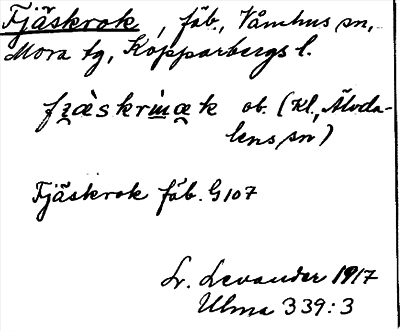 Fjäskrok, fäb, Våmhus sn,
Mora tg, Kopparbergs l.
fza᷆̀skrɯ̀æk ob. (Kl., Älvda-
lens sn)
Fjäskrok fäb. G107
Lr. Levander 1917
Ulma 339:3